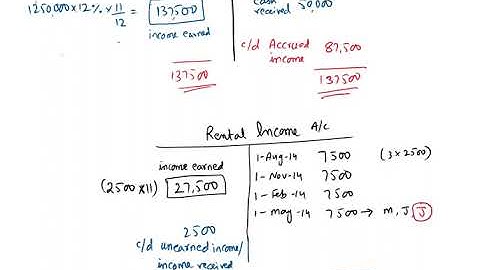 1250,000 x 12% x 11/12 = 137,500
income earned
cash received 50,000
c/d Accrued income 87,500
137500 137500
Rental Income A/c
income earned
(2500 x 11) 27,500
1-Aug-14 7500 (3 x 2500)
1-Nov-14 7500
1-Feb-14 7500
1-may-14 7500 → M, J, J
2500
c/d unearned income/
income received